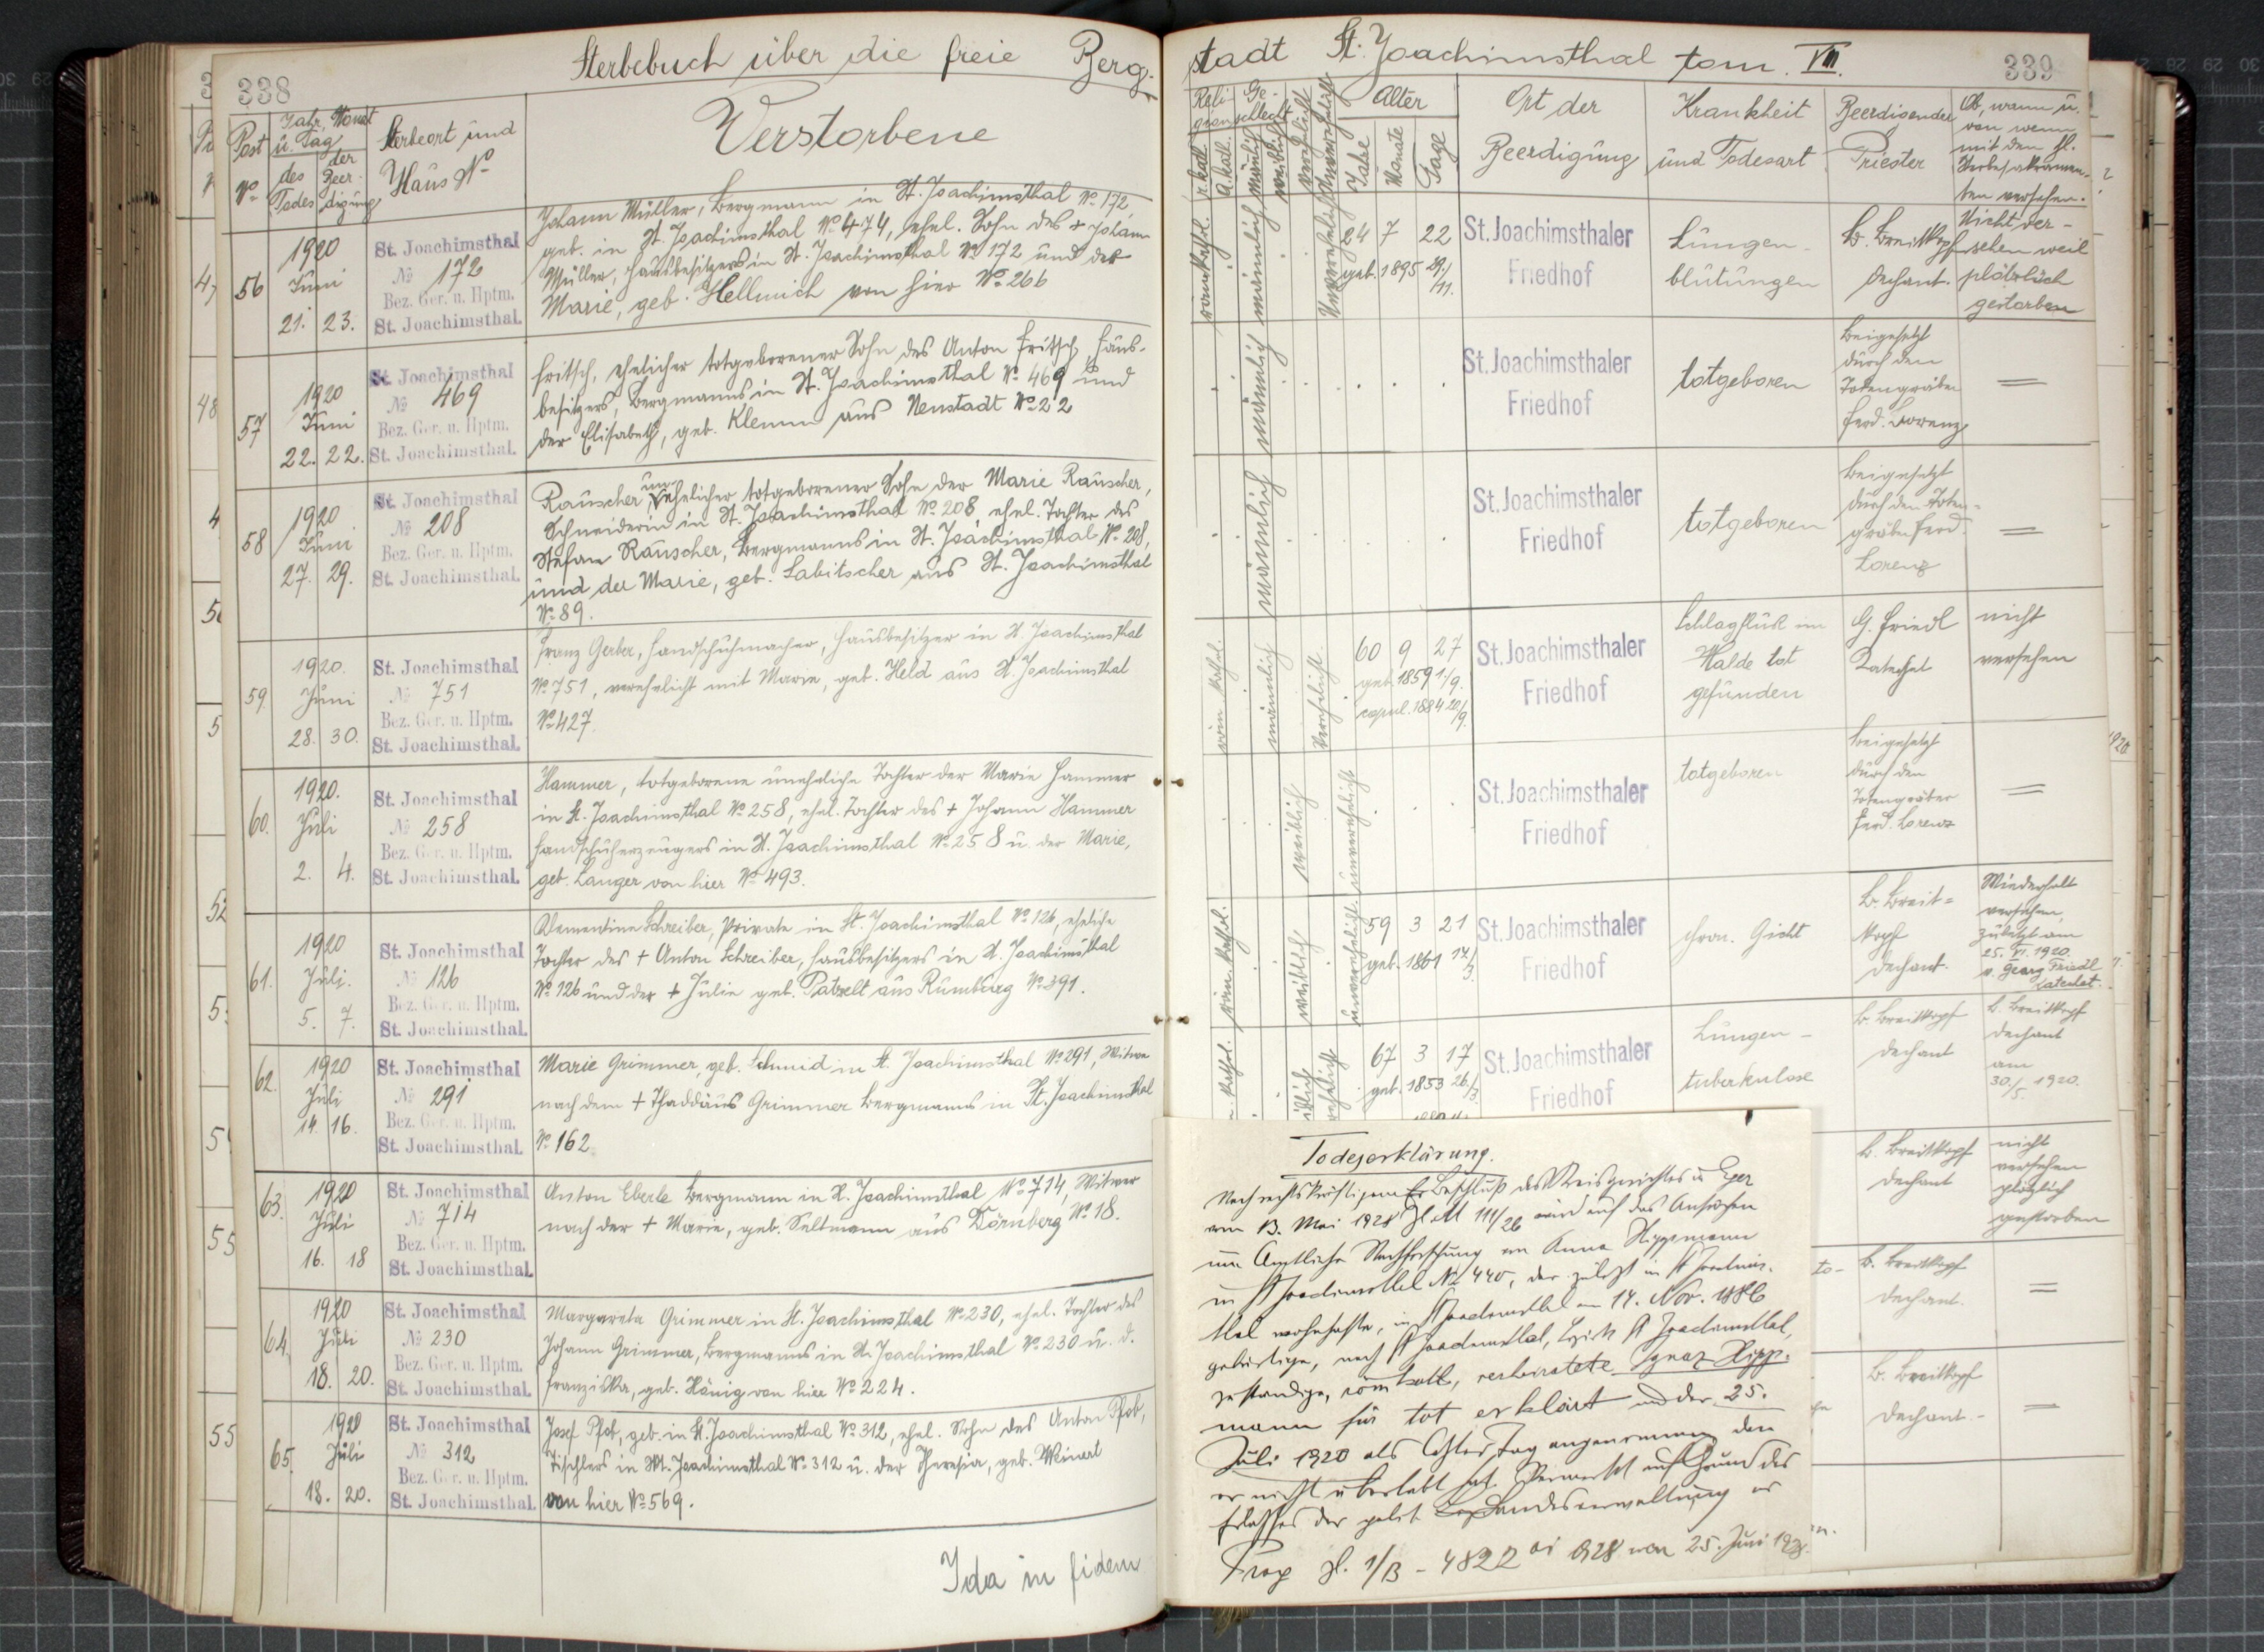 338
Sterbebuch über die freie Berg-
Post No.
Jahr, Monat u. Tag
des Todes
der Beerdigung
Sterbeort und
Haus No
Verstorbene
56
1920
Juni
21. 23.
St. Joachimsthal
No 172
Bez. Ger. u. Hptm.
St. Joachimsthal.
Johann Müller, Bergmann in St. Joachimsthal No 172
geb. in St. Joachimsthal No 474, ehel. Sohn des + Johann
Müller, Hausbesitzers in St. Joachimsthal No 172 und der
Marie, geb. Hellmich von hier No 266
57
1920
Juni
22. 22.
St. Joachimsthal
No 469
Bez. Ger. u. Hptm.
St. Joachimsthal.
Fritsch, ehelicher totgeborener Sohn des Anton Fritsch, Haus-
besitzers, Bergmanns in St. Joachimsthal No 469 und
der Elisabeth, geb. Klemm aus Neustadt No 22
58
1920
Juni
27. 29.
St. Joachimsthal
No 208
Bez. Ger. u. Hptm.
St. Joachimsthal.
Rauscher unehelicher totgeborener Sohn der Marie Rauscher,
Schneiderin in St. Joachimsthal No 208 ehel. Tochter des
Stefan Rauscher, Bergmanns in St. Joachimsthal No 208,
und der Marie, geb. Labitscher aus St. Joachimsthal
No 89.
59
1920.
Juni
28. 30.
St. Joachimsthal
No 751
Bez. Ger. u. Hptm.
St. Joachimsthal.
Franz Gerber, Handschuhmacher, Hausbesitzer in St. Joachimsthal
No 751, verehelicht mit Marie, geb. Held aus St. Joachimsthal
No 427.
60.
1920.
Juli
2. 4.
St. Joachimsthal
No 258
Bez. Ger. u. Hptm.
St. Joachimsthal.
Hammer, totgeborene uneheliche Tochter der Marie Hammer
in St. Joachimsthal No 258, ehel. Tochter des + Johann Hammer
Handschuherzeugers in St. Joachimsthal No 258 u. der Marie,
geb. Langer von hier No 493.
61.
1920
Juli.
5. 7.
St. Joachimsthal
No 126
Bez. Ger. u. Hptm.
St. Joachimsthal.
Klementine Schreiber, Private in St. Joachimsthal No 126, eheliche
Tochter des + Anton Schreiber, Hausbesitzers in St. Joachimsthal
No 126 und der + Julie geb. Patzelt aus Rumburg No 391.
62.
1920
Juli
14. 16.
St. Joachimsthal
No 291
Bez. Ger. u. Hptm.
St. Joachimsthal
Marie Grimmer, geb. Schmid in St. Joachimsthal No 291, Witwe
nach dem + Thaddäus Grimmer Bergmanns in St. Joachimsthal
No 162
63.
1920
Juli
16. 18
St. Joachimsthal
No 714
Bez. Ger. u. Hptm.
St. Joachimsthal.
Anton Eberle Bergmann in St. Joachimsthal No 714, Witwer
nach der + Marie, geb. Seltmann aus Dörnberg No 18.
64.
1920
Juli
18. 20.
St. Joachimsthal
No 230
Bez. Ger. u. Hptm.
St. Joachimsthal
Margareta Grimmer in St. Joachimsthal No 230, ehel. Tochter des
Johann Grimmer, Bergmanns in St. Joachimsthal No 230 u. d.
Franziska, geb. König von hier No 224.
65.
1920
Juli
18. 20.
St. Joachimsthal
No 312
Bez. Ger. u. Hptm.
St. Joachimsthal.
Josef Pfob, geb. in St. Joachimsthal No 312, ehel. Sohn des Anton Pfob,
Tischlers in St. Joachimsthal No 312 u. der Theresia, geb. Weinert
von hier No 569.
Ida in fidem
339
stadt St. Joachimsthal tom. VII.
Religion
r. kath.
a. kath.
Geschlecht
männlich
weiblich
verehelicht
unverehelicht
Alter
Jahre
Monate
Tage
Ort der
Beerdigung
Krankheit
und Todesart
Beerdigender
Priester
Ob, wann u.
von wem
mit den hl.
Sterbesakramen-
ten versehen.
römkathol.
männlich
Unverehelicht
24 7 22
geb. 1895 29./11.
St. Joachimsthaler
Friedhof
Lungen-
blutungen
B. Breitkopf
Dechant.
Nicht ver-
sehen weil
plötzlich
gestorben
männlich
St. Joachimsthaler
Friedhof
totgeboren
Beigesetzt
durch den
Totengräber
Ferd. Lorenz
männlich
St. Joachimsthaler
Friedhof
totgeboren
Beigesetzt
durch den Toten-
gräber Ferd.
Lorenz
röm kathol.
männlich
Verehelicht
60 9 27
geb. 1859 1./9.
copul. 1884 20/9.
St. Joachimsthaler
Friedhof
Schlagfluß im
Walde tot
gefunden
G. Friedl
Katechet
nicht
versehen
weiblich
unverehelicht
St. Joachimsthaler
Friedhof
totgeboren
Beigesetzt
durch den
Totengräber
Ferd. Lorenz
röm. kathol.
weiblich
unverehelicht
59 3 21
geb. 1861 14/3.
St. Joachimsthaler
Friedhof
chron. Gicht
B. Breit=
kopf
Dechant.
Wiederholt
versehen,
zuletzt am
25. VI. 1920.
v. Georg Friedl
Katechet.
67 3 17
geb. 1853 26/3.
St. Joachimsthaler
Friedhof
Lungen-
tuberkulose
B. Breitkopf
Dechant
B. Breitkopf
Dechant
am
30./5. 1920.
B. Breitkopf
Dechant
nicht
versehen
plötzlich
gestorben
B. Breitkopf
Dechant.
B. Breitkopf
Dechant.-
Todeserklärung.
Nach rechtskräftigem Beschluß des Kreisgerichtes in Eger
vom 13. Mai 1928 111/26 wird auf das Ansuchen
um Amtliche Nachforschung von Anna Hippmann
in St Joachimsthal No 440, der zuletzt in St Joachims-
thal wohnhafte, in St Joachimsthal am 14. Nov. 1886
gebürtige, nach St Joachimsthal, Bezirk St Joachimsthal,
zuständige, röm kath, verheiratete Ignaz Hipp-
mann für tot erklärt und der 25.
Juli 1920 als Tag angenommen den
er nicht überlebt hat. Vermerkt auf Grund des
Erlasses der polit. Landesverwaltung in
Prag Zl. 1/B - 4822 1928 vom 25. Juni